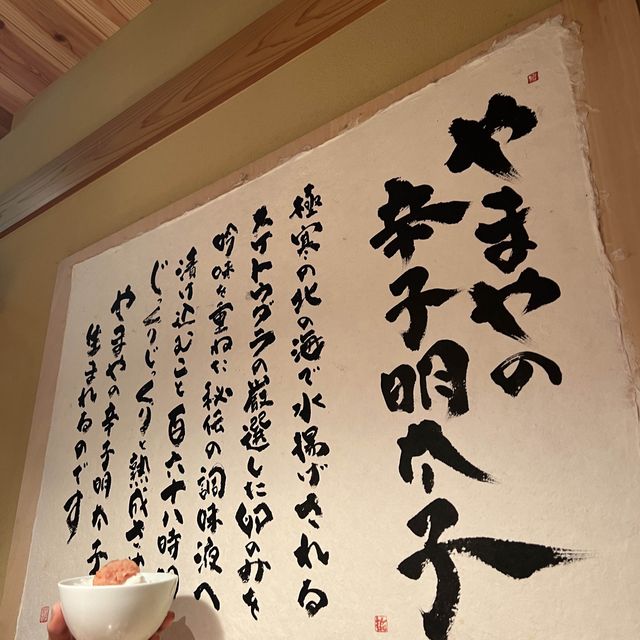 やまやの
辛子明太子
極寒の北の海で水揚げされる
スケトウダラの厳選した卵のみを
吟味を重ねた秘伝の調味液へ
漬け込むこと百六十八時間
じっくりじっくりと熟成さ
やまやの辛子明太子
生まれるのです